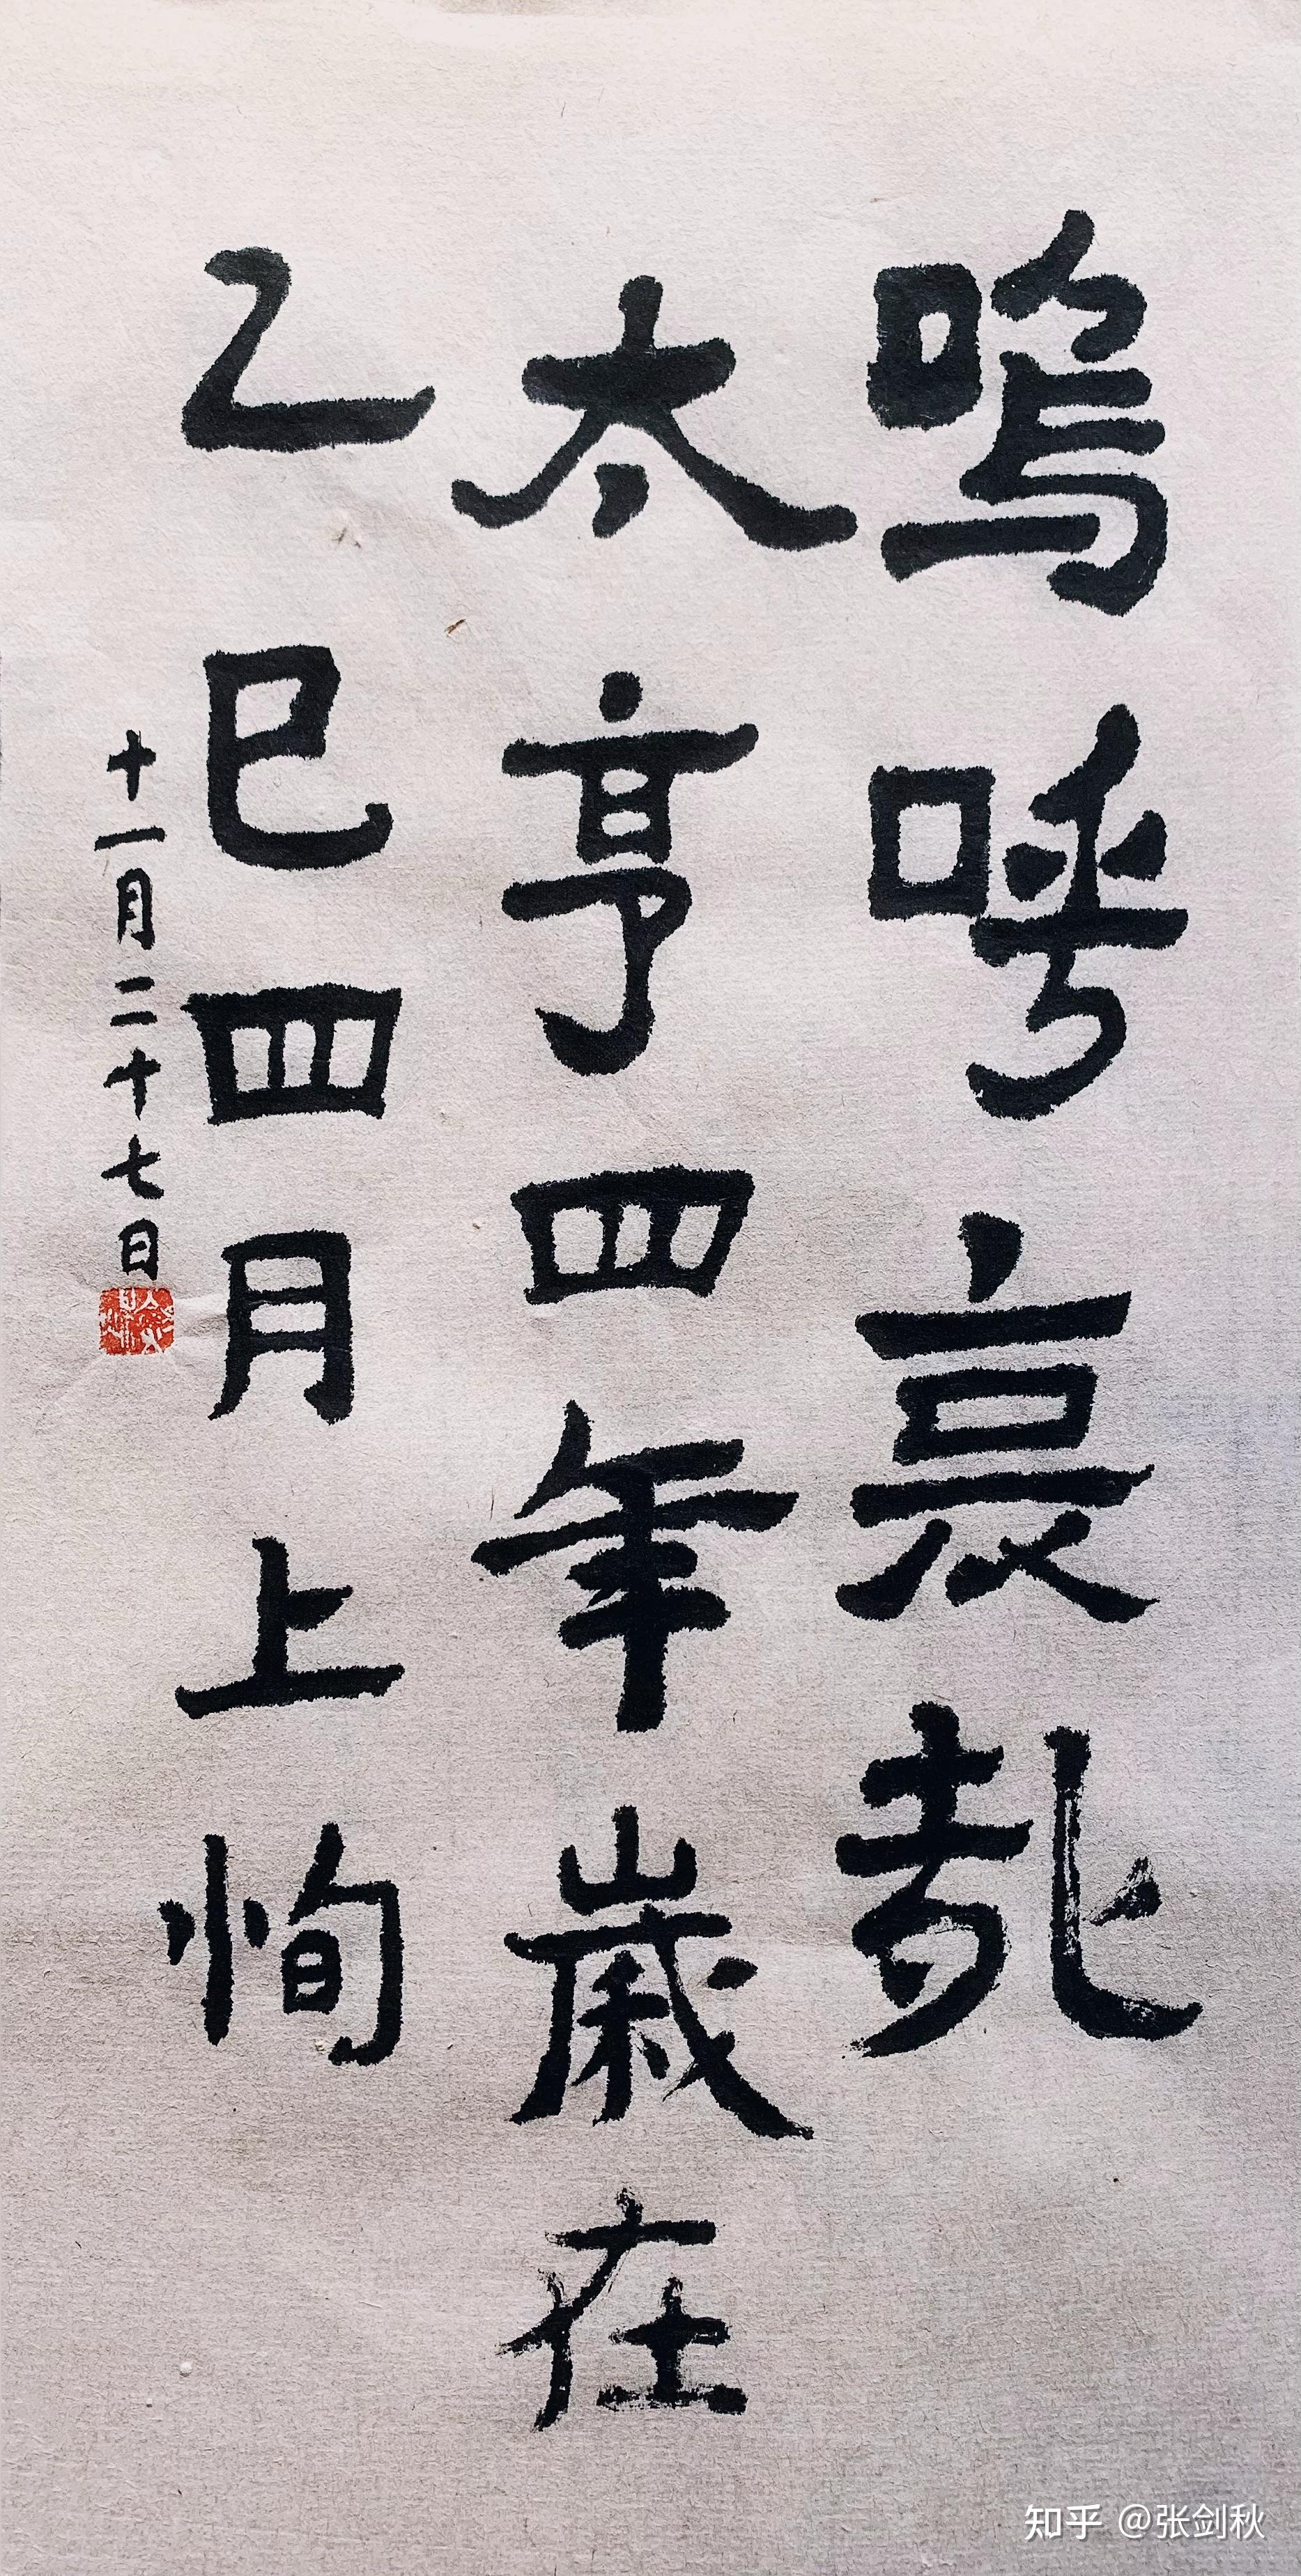 嗚呼哀哉
太亨四年歲在
乙巳四月上恂
十一月二十七日
知乎 @张剑秋